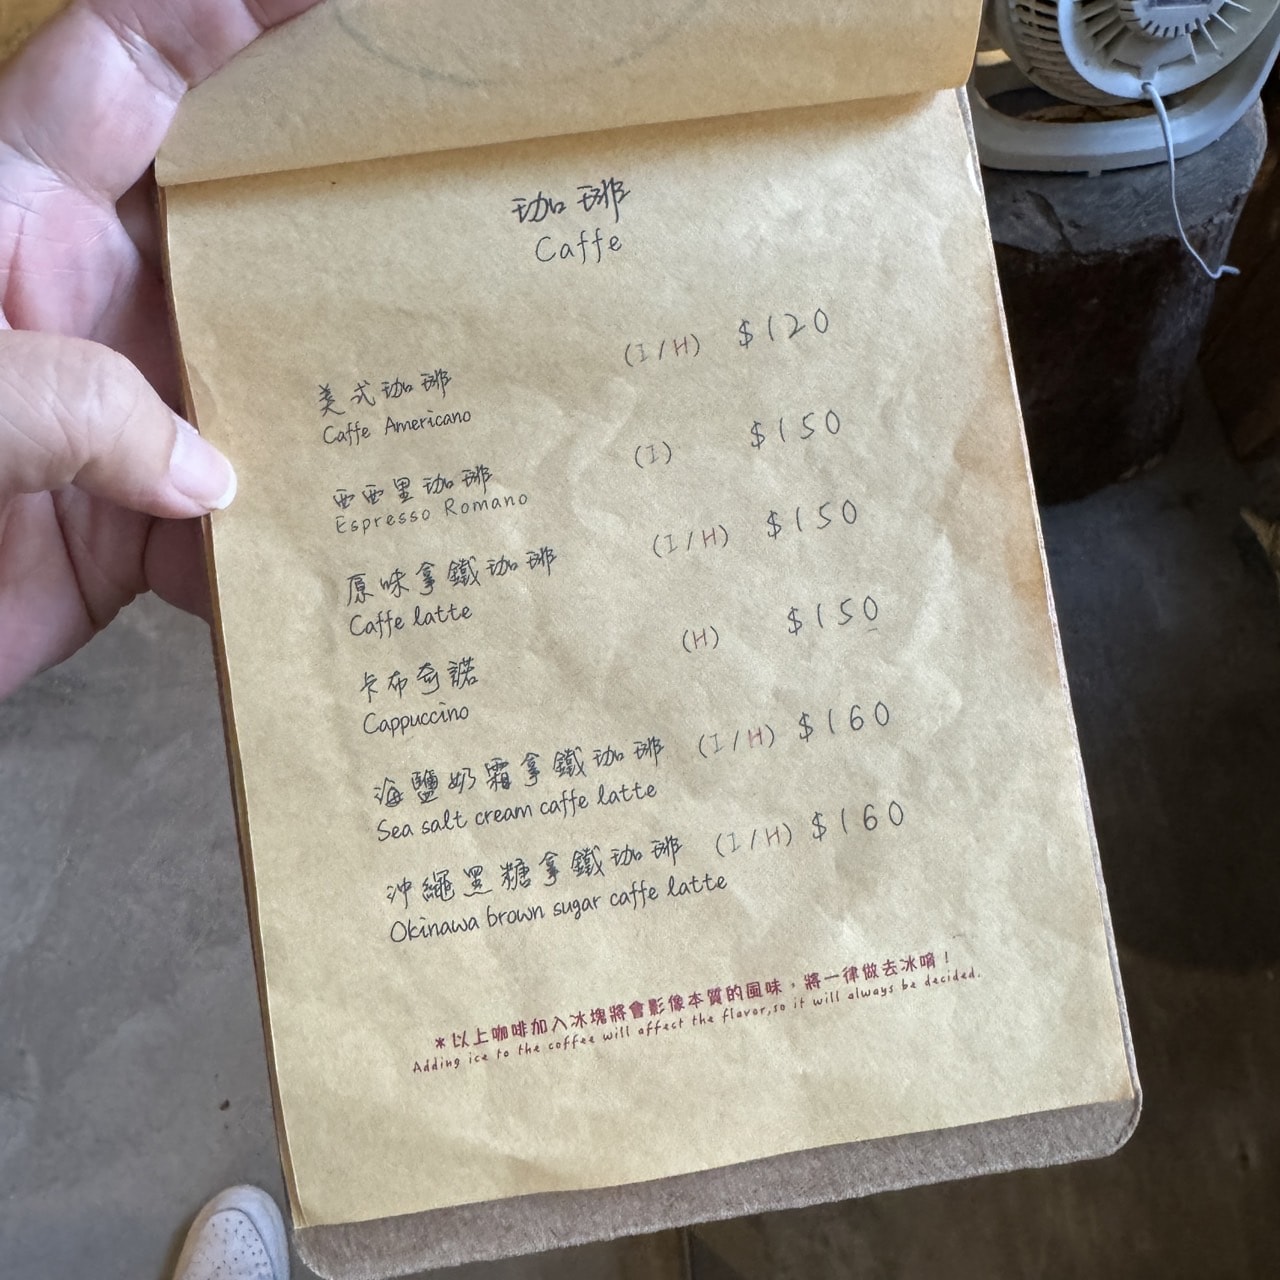 珈琲
Caffe
美式珈琲 (I/H) $120
Caffe Americano
西西里珈琲 (I) $150
Espresso Romano
原味拿鐵珈琲 (I/H) $150
Caffe latte
卡布奇諾 (H) $150
Cappuccino
海鹽奶霜拿鐵珈琲 (I/H) $160
Sea salt cream caffe latte
沖繩黑糖拿鐵珈琲 (I/H) $160
Okinawa brown sugar caffe latte
*以上咖啡加入冰塊將會影像本質的風味，將一律做去冰唷！
Adding ice to the coffee will affect the flavor,so it will always be decided.